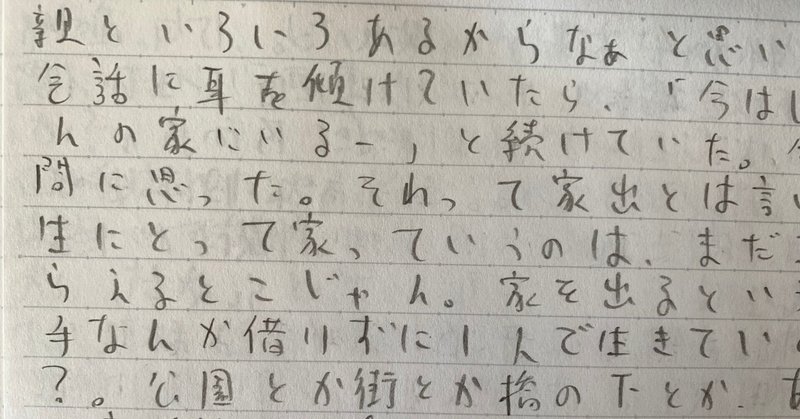 親といろいろあるからなぁと思い
会話に耳を傾けていたら、「今は
んの家にいるー」と続けていた。
問に思った。それって家出とは言
生にとって家っていうのは、まだ
らえるとこじゃん。家を出るとい
手なんか借りずに1人で生きてい
?。公園とか街とか橋の下とか